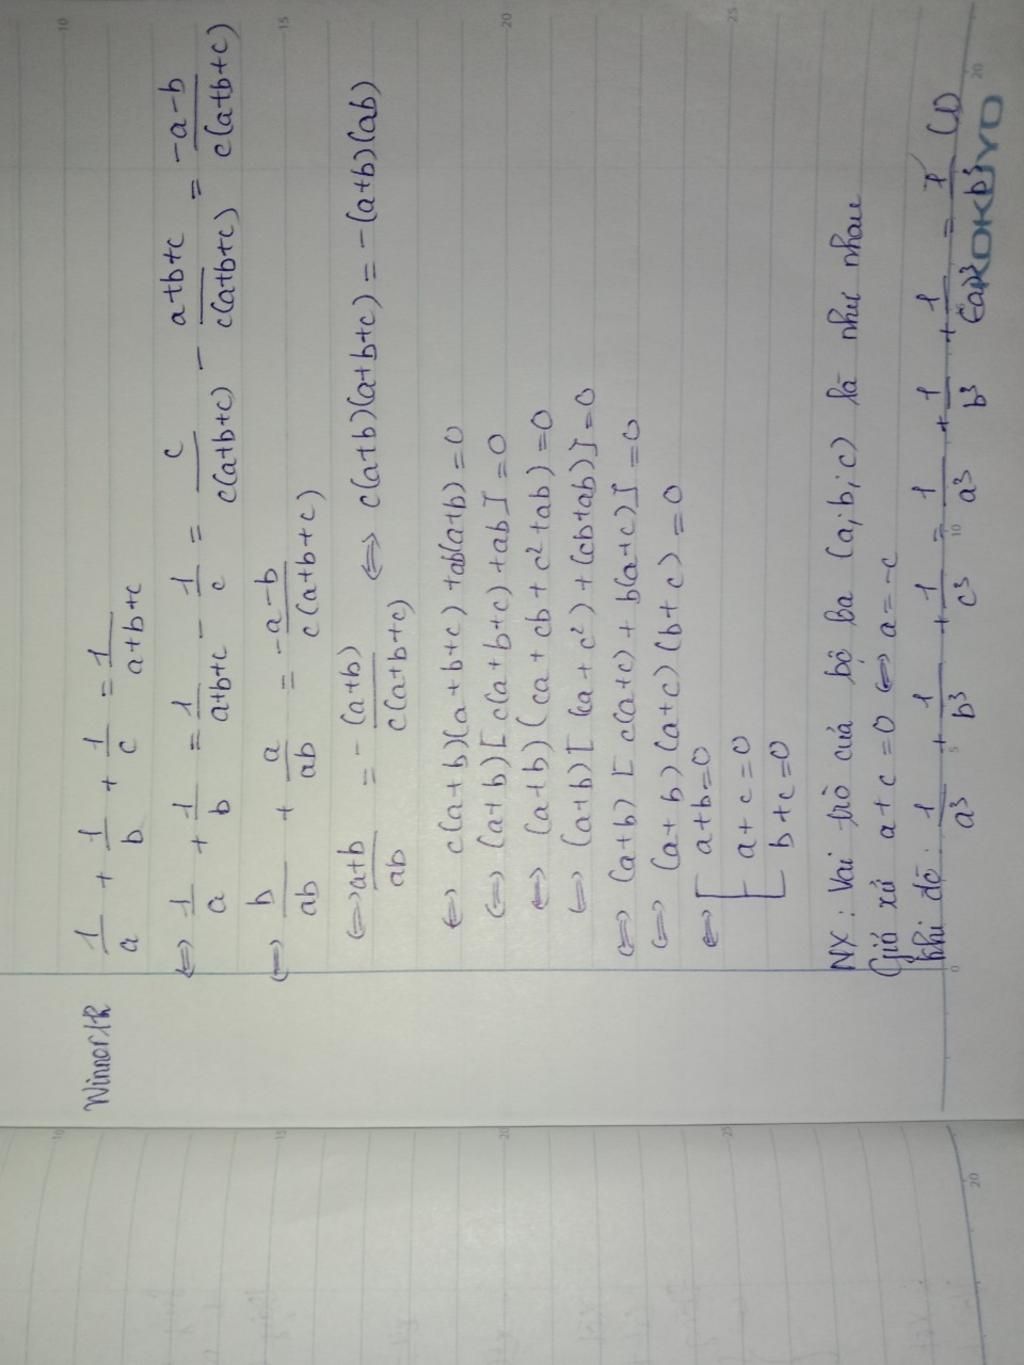 Winner1R
1/a + 1/b + 1/c = 1/(a+b+c)
⇔ 1/a + 1/b = 1/(a+b+c) - 1/c = c/(c(a+b+c)) - (a+b+c)/(c(a+b+c)) = (-a-b)/(c(a+b+c))
⇔ b/ab + a/ab = (-a-b)/(c(a+b+c))
⇔ (a+b)/ab = -(a+b)/(c(a+b+c)) ⇔ c(a+b)(a+b+c) = -(a+b)(ab)
⇔ c(a+b)(a+b+c) + ab(a+b) = 0
⇔ (a+b)[c(a+b+c) + ab] = 0
⇔ (a+b)(ca + cb + c² + ab) = 0
⇔ (a+b)[(ca + c²) + (cb+ab)] = 0
⇔ (a+b)[c(a+c) + b(a+c)] = 0
⇔ (a+b)(a+c)(b+c) = 0
⇔ [ a+b=0
a+c=0
b+c=0
NX: Vai trò của bộ ba (a;b;c) là như nhau
Giả sử a+c=0 ⇔ a=-c
Khi đó: 1/a³ + 1/b³ + 1/c³ = 1/a³ + 1/b³ + 1/(-a)³ = 1/b³ (1)
KOKUYO
10
15
20
25
20
0
5
10
10
15
20
25
20